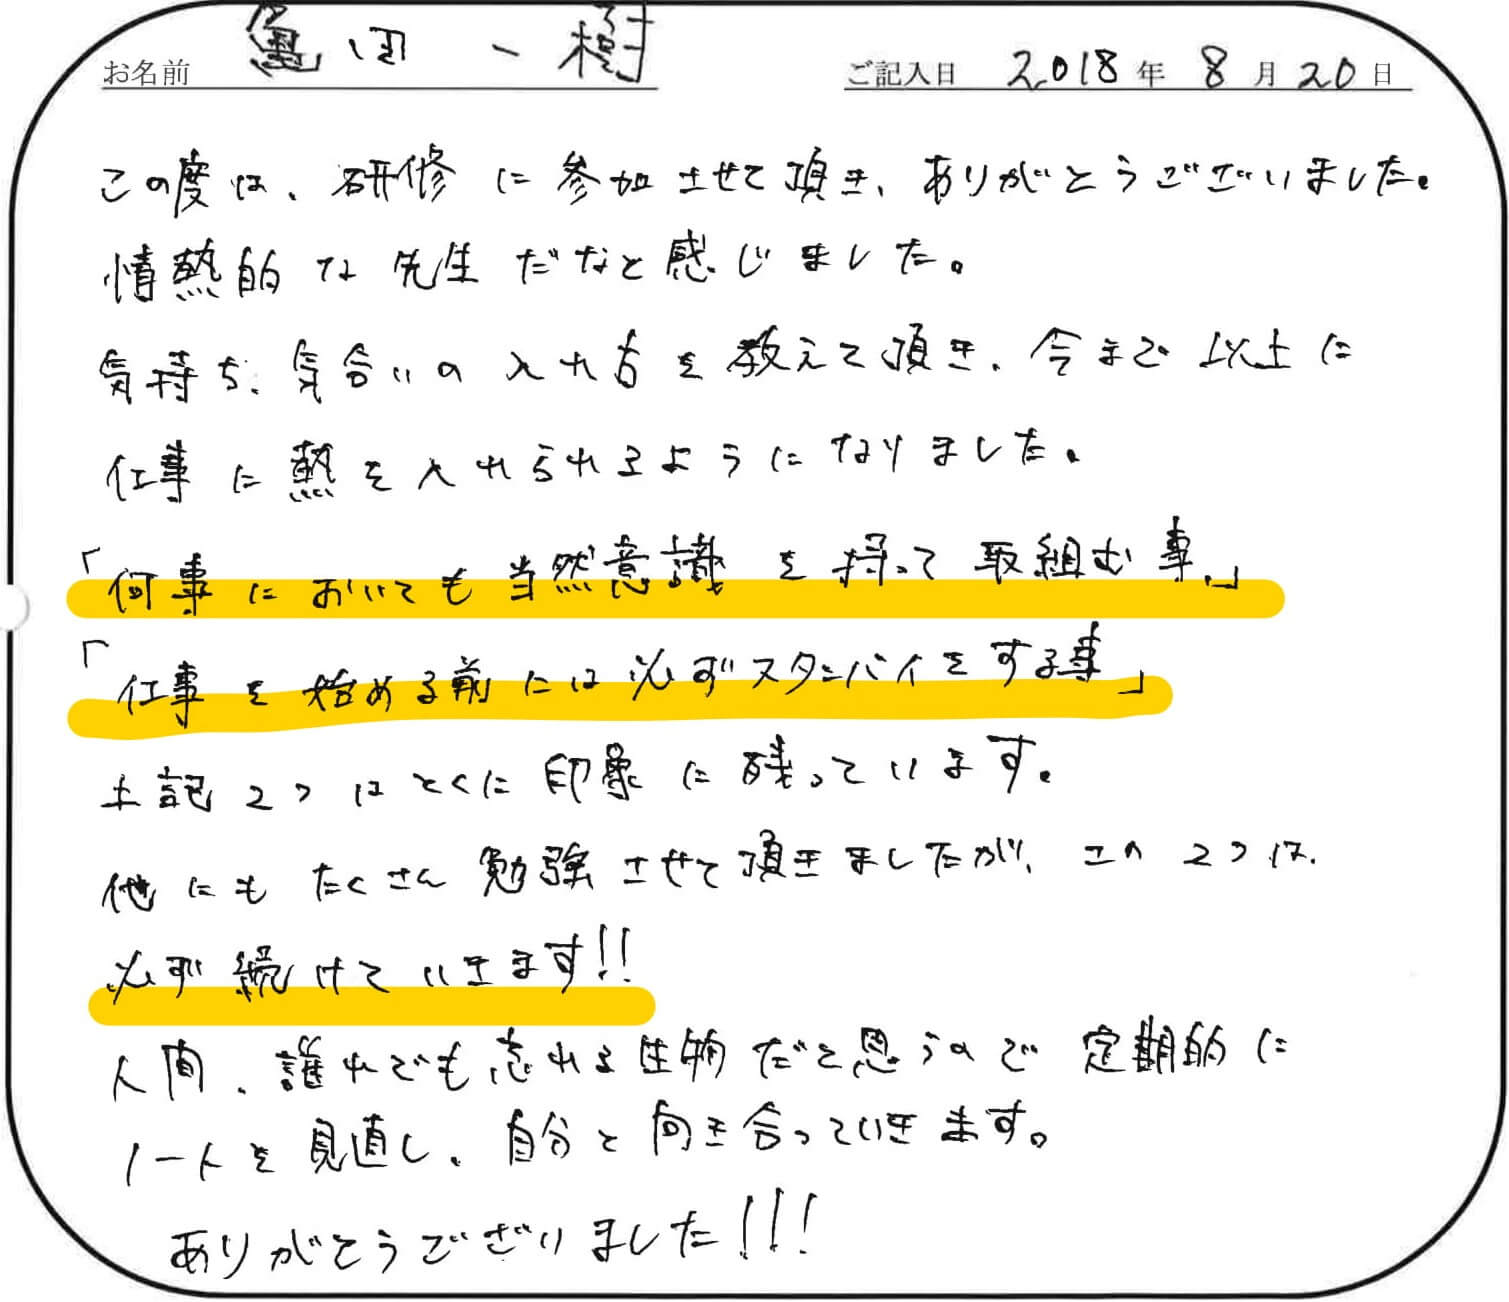 お名前 亀田 一樹 ご記入日 2018年 8月20日
この度は、研修に参加させて頂き、ありがとうございました。
情熱的な先生だなと感じました。
気持ち、気合いの入れ方を教えて頂き、今まで以上に
仕事に熱を入れられるようになりました。
「何事においても当然意識を持って取組む事。」
「仕事を始める前には必ずスタンバイをする事」
上記2つはとくに印象に残っています。
他にもたくさん勉強させて頂きましたが、この2つは、
必ず続けていきます!!
人間、誰れでも忘れる生物だと思うので定期的に
ノートを見直し、自分と向き合っていきます。
ありがとうございました!!!